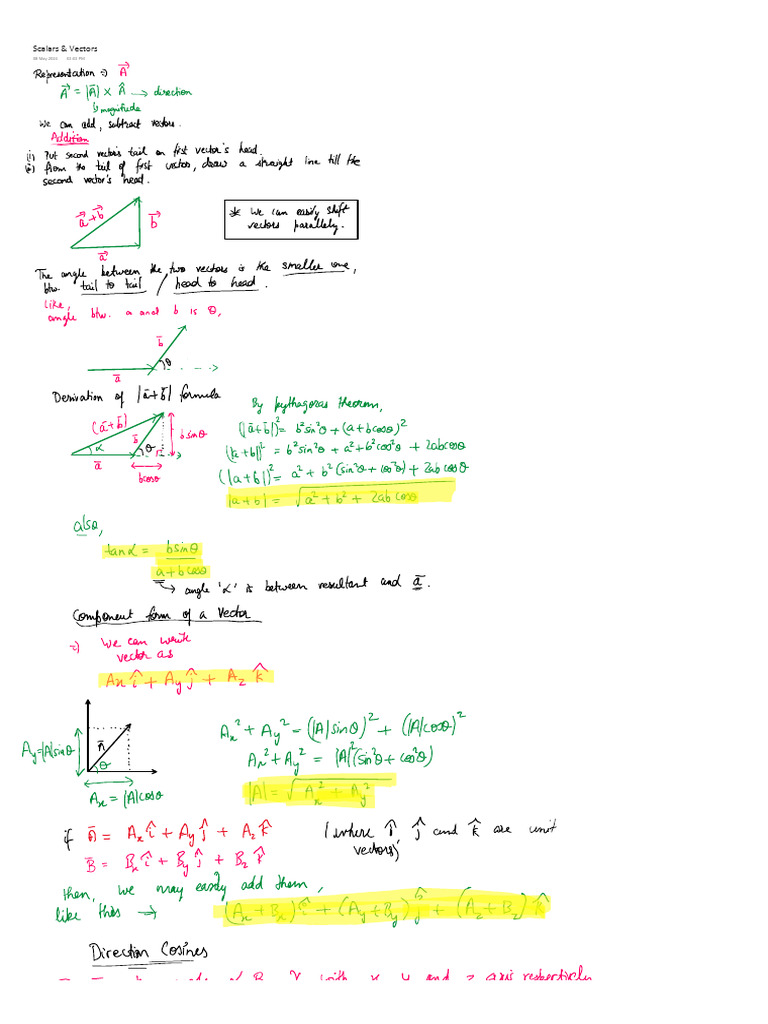 Scalars & Vectors
08 May 2023
Representation :) A⃗
A⃗ = |A̅| × Â → direction
↳ magnitude
We can add, subtract vectors.
Addition
(i) Put second vector's tail on first vector's head.
(ii) from the tail of first vector, draw a straight line till the
second vector's head.
a⃗+b⃗
b⃗
a⃗
* We can easily shift
vectors parallely.
The angle between the two vectors is the smaller one,
btw. tail to tail / head to head.
like,
angle btw. a and b is θ,
b̅
θ
a̅
Derivation of |a̅+b̅| formula
(a̅+b̅)
b̅
α
θ
a̅
b sinθ
b cosθ
By pythagoras theorem,
(|a̅+b̅|)² = b²sin²θ + (a+bcosθ)²
(|a+b|)² = b²sin²θ + a² + b²cos²θ + 2abcosθ
(|a+b|)² = a² + b²(sin²θ + cos²θ) + 2ab cosθ
|a+b| = √a² + b² + 2ab cosθ
also,
tanα = bsinθ
a+bcosθ
→ angle 'α' is between resultant and a̅.
Component form of a Vector
:) We can write
vector as
Axî + Ayĵ + Azk̂
Ay=|A|sinθ
A̅
θ
Ax = |A|cosθ
Ax² + Ay² = (|A|sinθ)² + (|A|cosθ)²
Ax² + Ay² = |A|²(sin²θ + cos²θ)
|A| = √Ax² + Ay²
if A̅ = Axî + Ayĵ + Azk̂
(where î, ĵ and k̂ are unit
vectors)
B̅ = Bxî + Byĵ + Bzk̂
then, we may easily add them,
like this → (Ax+Bx)î + (Ay+By)ĵ + (Az+Bz)k̂
Direction Cosines
with x, y and z axis respectively